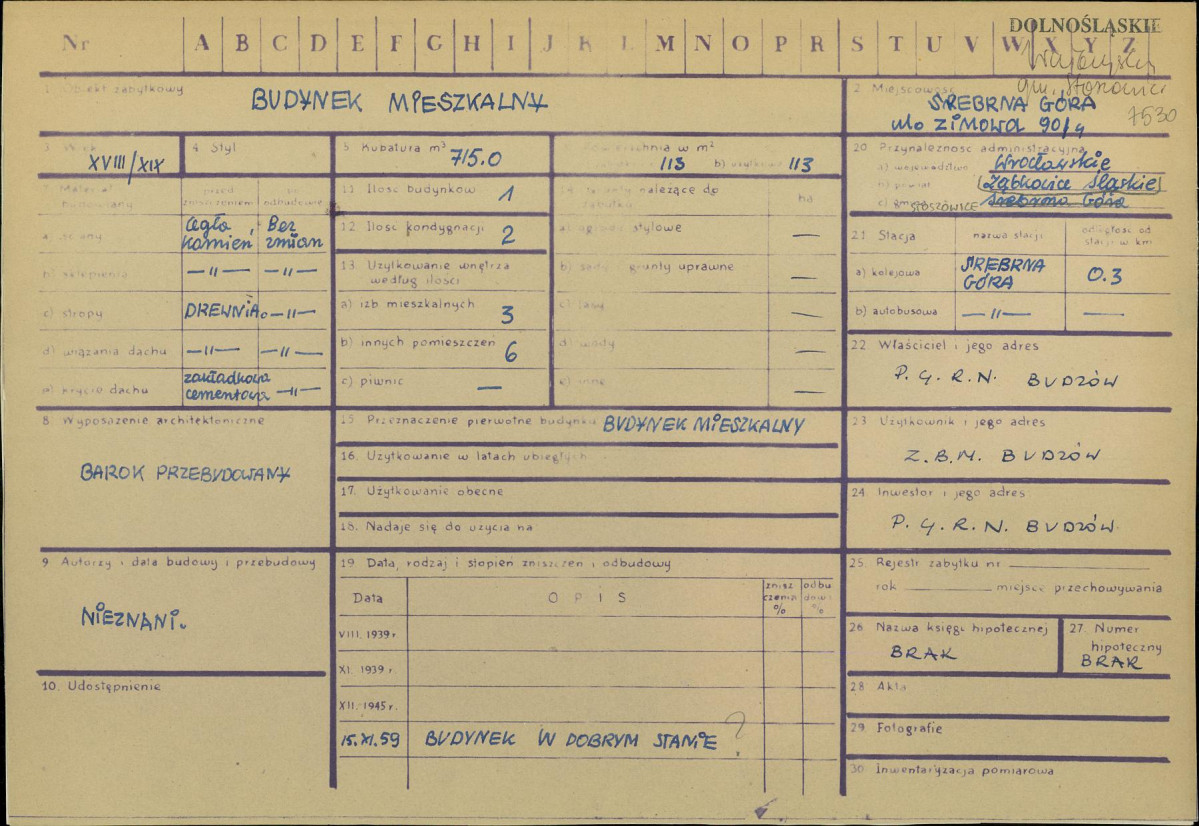 DOLNOŚLĄSKIE
Nr A B C D E F G H I J K L M N O P R S T U V W X Y Z
gm.
7530
1. Obiekt zabytkowy
BUDYNEK MIESZKALNY
2. Miejscowość
SREBRNA GÓRA
ulo ZIMOWA 90/4
3. Wiek
XVIII/XIX
4. Styl
5. Kubatura m³ 715.0
6. Powierzchnia w m²
113 b) użytkowa 113
20. Przynależność administracyjna
a) województwo Wrocławskie
b) powiat (Ząbkowice Śląskie)
c) gmina STOSZOWICE Srebrna Góra
7. Materiał budowlany
przed zniszczeniem
po odbudowie
a) ściany
Cegła, kamień
Bez zmian
b) sklepienia
—〃—
—〃—
c) stropy
DREWNIA.
—〃—
d) wiązania dachu
—〃—
—〃—
e) krycie dachu
zakładkowa cementowa
—〃—
11. Ilość budynków 1
12. Ilość kondygnacji 2
13. Użytkowanie wnętrza
według ilości
a) izb mieszkalnych 3
b) innych pomieszczeń 6
c) piwnic —
14. Grunty należące do
zabytku
ha
a) ogrody stylowe —
b) sady, grunty uprawne —
c) lasy —
d) wody —
e) inne —
21. Stacja
nazwa stacji
odległość od
stacji w km
a) kolejowa
SREBRNA
GÓRA
0.3
b) autobusowa —〃— —
22. Właściciel i jego adres
P. G. R. N. BUDZÓW
8. Wyposażenie architektoniczne
BAROK PRZEBUDOWANY
15. Przeznaczenie pierwotne budynku BUDYNEK MIESZKALNY
16. Użytkowanie w latach ubiegłych
17. Użytkowanie obecne
18. Nadaje się do użycia na
23. Użytkownik i jego adres
Z. B. M. BUDZÓW
24. Inwestor i jego adres
P. G. R. N. BUDZÓW.
9. Autorzy i data budowy i przebudowy
NIEZNANI.
10. Udostępnienie
19. Data, rodzaj i stopień zniszczeń i odbudowy
Data
OPIS
znisz
czenia
%
odbu
dowy
%
VIII. 1939 r.
XI. 1939 r.
XII. 1945 r.
15.XI.59 BUDYNEK W DOBRYM STANIE ?
25. Rejestr zabytku nr
rok miejsce przechowywania
26. Nazwa księgi hipotecznej
BRAK
27. Numer
hipoteczny
BRAK
28. Akta
29. Fotografie
30. Inwentaryzacja pomiarowa